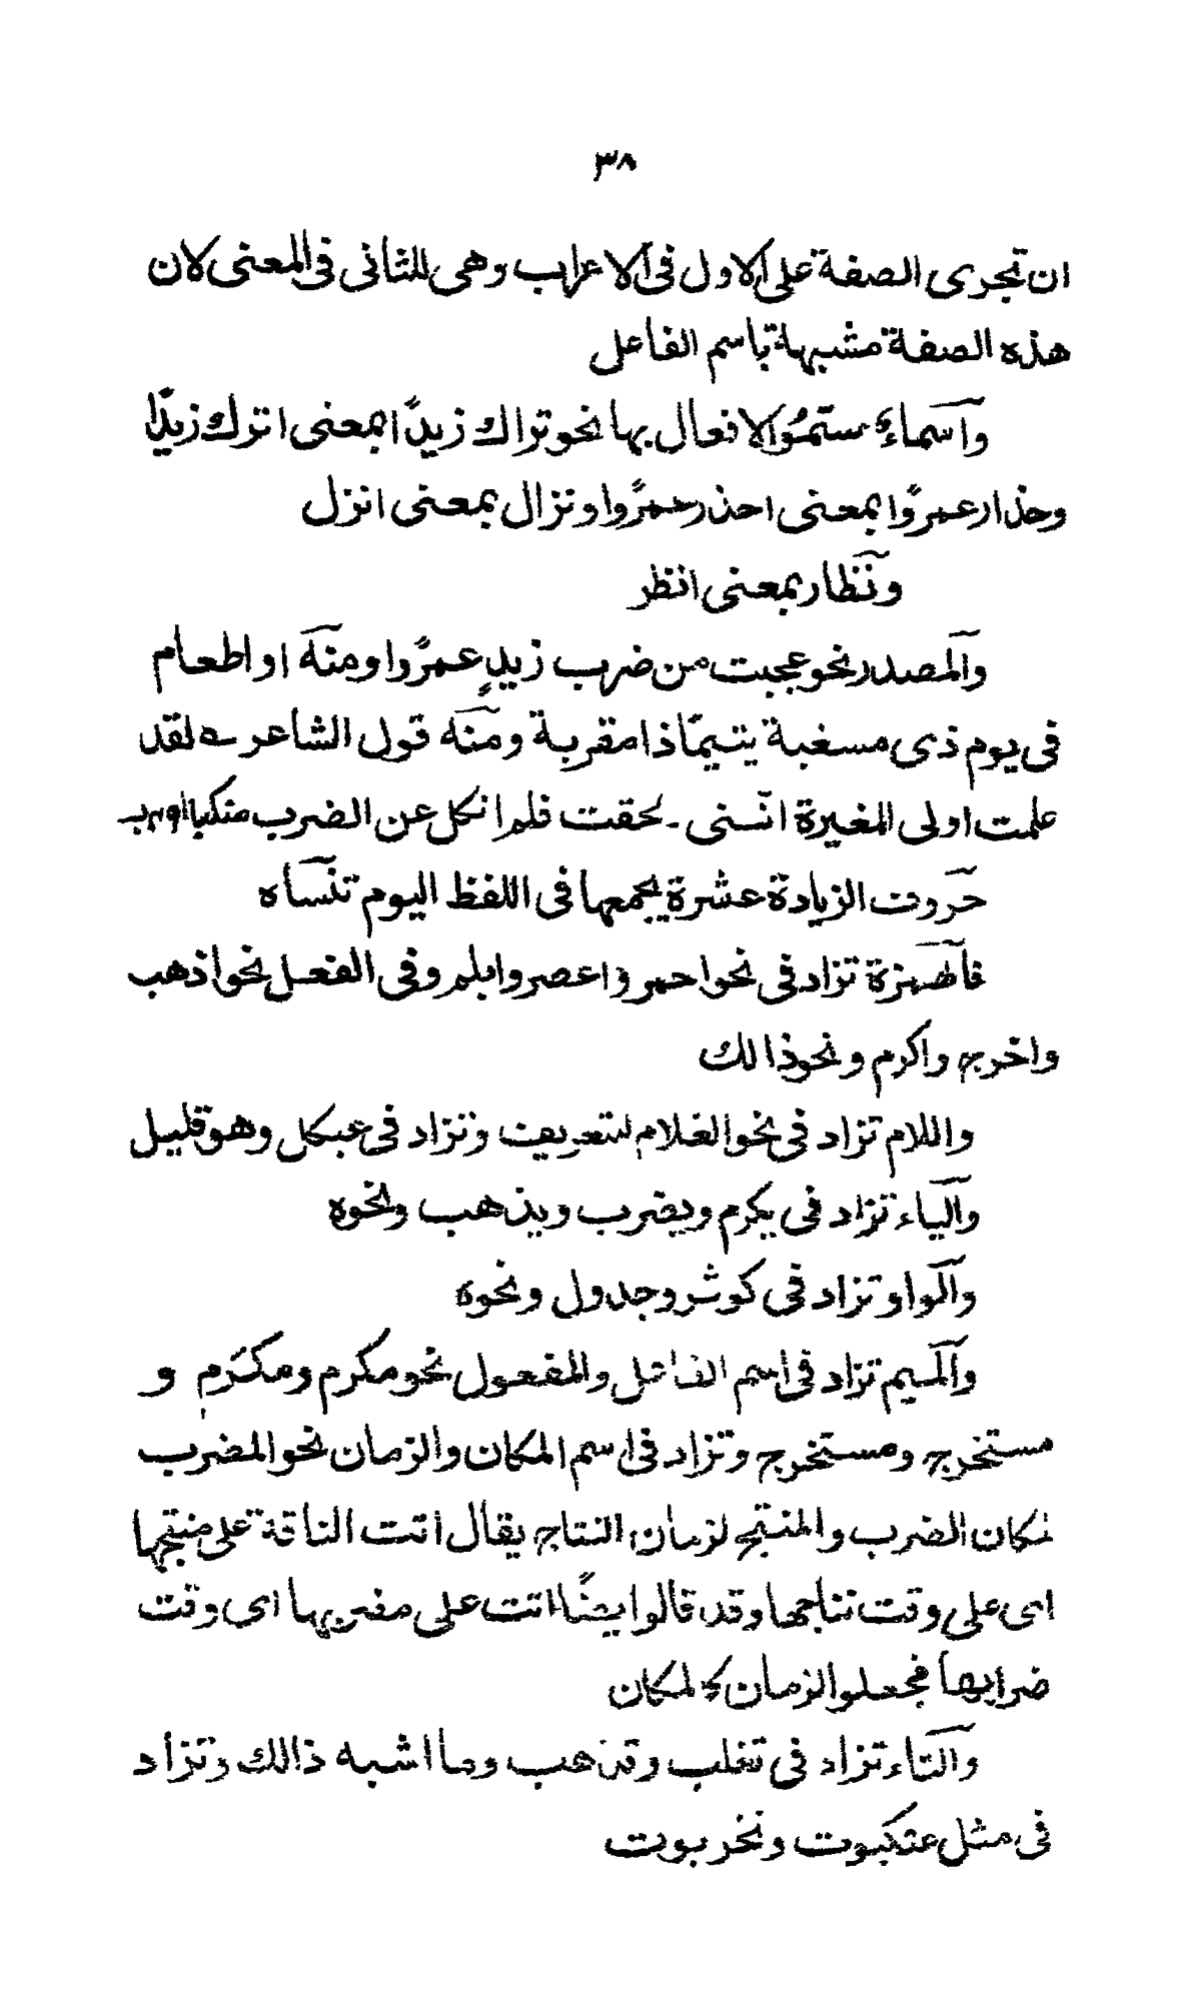 ٣٨
ان تجرى الصفة على الاول فى الاعراب وهى للثانى فى المعنى لان
هذه الصفة مشبهة باسم الفاعل
واسماءٌ سمّوا الافعال بها نحو تراك زيدًا بمعنى اترك زيدًا
وحذار عمرًوا بمعنى احذر عمرًوا ونزال بمعنى انزل
ونظار بمعنى انظر
والمصدر نحو عجبت من ضرب زيدٍ عمرًوا ومنه او اطعام
فى يوم ذى مسغبة يتيمًا ذا مقربة ومنه قول الشاعر لقد
علمت اولى المغيرة انّنى ۔ لحقت فلم انكل عن الضرب
حروف الزيادة عشرة يجمعها فى اللفظ اليوم تنساه
فالهمزة تزاد فى نحو احمر واعصر وابلم وفى الفعل نحو اذهب
واخرج واكرم ونحو ذالك
واللام تزاد فى نحو الغلام للتعريف وتزاد فى عبكل وهو قليل
والياء تزاد فى يكرم ويضرب ويذهب ونحوه
والواو تزاد فى كوثر وجدول ونحوه
والميم تزاد فى اسم الفاعل والمفعول نحو مكرم ومكرَم و
مستخرج ومستخرج وتزاد فى اسم المكان والزمان نحو المضرب
لمكان الضرب والمنتج لزمان النتاج يقال اتت الناقة على منتجها
اى على وقت نتاجها وقد قالوا ايضًا اتت على مضربها اى وقت
ضرابها فجعلوا الزمان كالمكان
والتاء تزاد فى تغلب وتذهب وما اشبه ذالك وتزاد
فى مثل عنكبوت ونخربوت